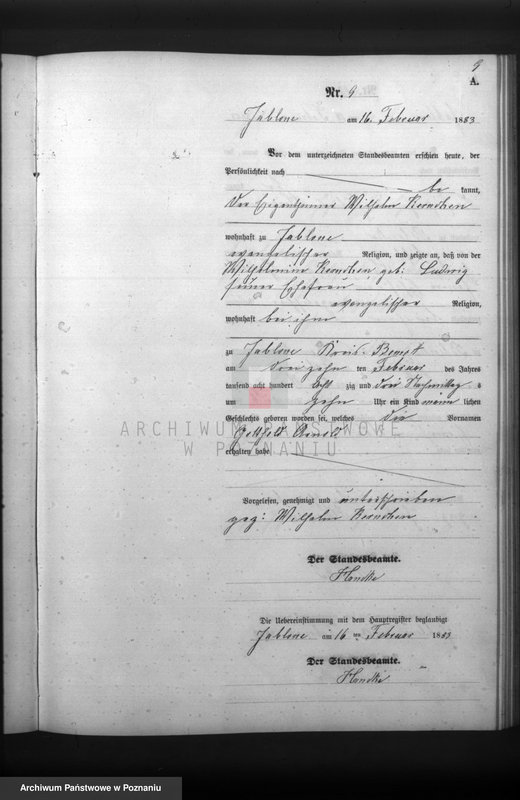 9
A.
Nr. 9
Jablone am 16. Februar 1883
Vor dem unterzeichneten Standesbeamten erschien heute, der
Persönlichkeit nach
be kannt,
der Eigenthümer Wilhelm Kernchen
wohnhaft zu Jablone
evangelischer Religion, und zeigte an, daß von der
Wilhelmine Kernchen geb: Ludwig
seiner Ehefrau
evangelischer Religion,
wohnhaft bei ihm
zu Jablone Kreis Bomst
am dreizehn ten Februar des Jahres
tausend acht hundert acht zig und drei Nachmittag s
um zehn Uhr ein Kind männ lichen
Geschlechts geboren worden sei, welches die Vornamen
Gottfold
erhalten habe
Vorgelesen, genehmigt und unterschrieben
gez: Wilhelm Kernchen
Der Standesbeamte.
Die Uebereinstimmung mit dem Hauptregister beglaubigt
Jablone am 16 ten Februar 1883
Der Standesbeamte.
ARCHIWUM PAŃSTWOWE
W POZNANIU
Archiwum Państwowe w Poznaniu